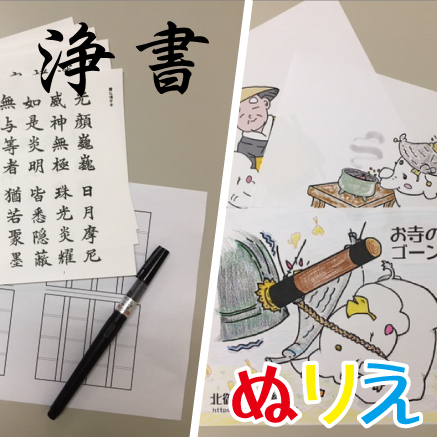 浄書
光顔巍巍
威神無極
如是炎明
無与等者
日月摩尼
珠光炎耀
皆悉隠蔽
猶若聚墨
お寺の
ゴーン
北御
https
ぬりえ